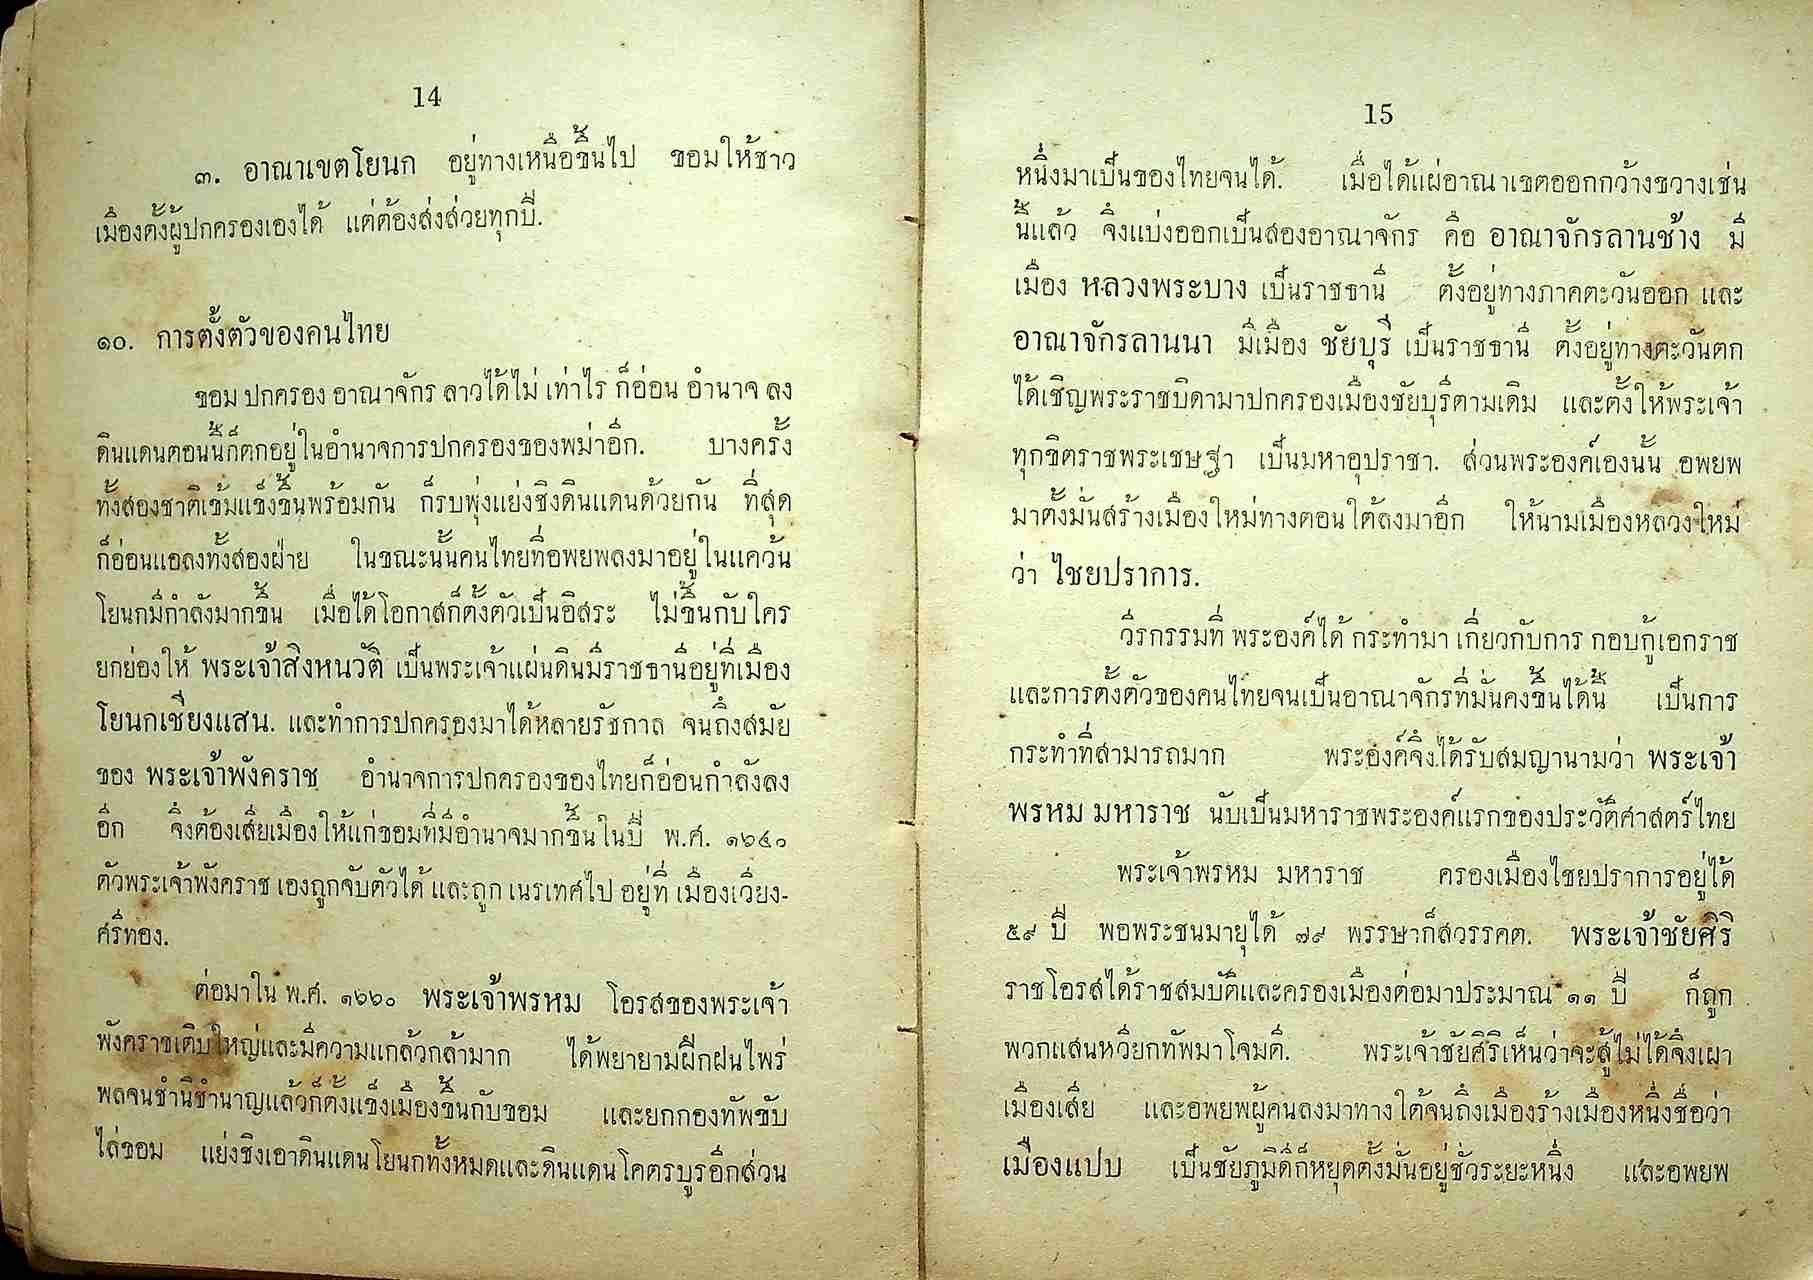 14
๓. อาณาเขตโยนก อยู่ทางเหนือขึ้นไป ขอมให้ชาว
เมืองตั้งผู้ปกครองเองได้ แต่ต้องส่งส่วยทุกปี.
๑๐. การตั้งตัวของคนไทย
ขอม ปกครอง อาณาจักร ลาวได้ไม่ เท่าไร ก็อ่อน อำนาจ ลง
ดินแดนตอนนี้ก็ตกอยู่ในอำนาจการปกครองของพม่าอีก. บางครั้ง
ทั้งสองชาติเข้มแข็งขึ้นพร้อมกัน ก็รบพุ่งแย่งชิงดินแดนด้วยกัน ที่สุด
ก็อ่อนแอลงทั้งสองฝ่าย ในขณะนั้นคนไทยที่อพยพลงมาอยู่ในแคว้น
โยนกมีกำลังมากขึ้น เมื่อได้โอกาสก็ตั้งตัวเป็นอิสระ ไม่ขึ้นกับใคร
ยกย่องให้ พระเจ้าสิงหนวัติ เป็นพระเจ้าแผ่นดินมีราชธานีอยู่ที่เมือง
โยนกเชียงแสน. และทำการปกครองมาได้หลายรัชกาล จนถึงสมัย
ของ พระเจ้าพังคราช อำนาจการปกครองของไทยก็อ่อนกำลังลง
อีก จึงต้องเสียเมืองให้แก่ขอมที่มีอำนาจมากขึ้นในปี พ.ศ. ๑๖๔๐
ตัวพระเจ้าพังคราช เองถูกจับตัวได้ และถูก เนรเทศไป อยู่ที่ เมืองเวียง-
ศรีทอง.
ต่อมาใน พ.ศ. ๑๖๖๐ พระเจ้าพรหม โอรสของพระเจ้า
พังคราชเติบใหญ่และมีความแกล้วกล้ามาก ได้พยายามฝึกฝนไพร่
พลจนชำนิชำนาญแล้วก็ตั้งแข็งเมืองขึ้นกับขอม และยกกองทัพขับ
ไล่ขอม แย่งชิงเอาดินแดนโยนกทั้งหมดและดินแดนโคตรบูรอีกส่วน
15
หนึ่งมาเป็นของไทยจนได้. เมื่อได้แผ่อาณาเขตออกกว้างขวางเช่น
นี้แล้ว จึงแบ่งออกเป็นสองอาณาจักร คือ อาณาจักรลานช้าง มี
เมือง หลวงพระบาง เป็นราชธานี ตั้งอยู่ทางภาคตะวันออก และ
อาณาจักรลานนา มีเมือง ชัยบุรี เป็นราชธานี ตั้งอยู่ทางตะวันตก
ได้เชิญพระราชบิดามาปกครองเมืองชัยบุรีตามเดิม และตั้งให้พระเจ้า
ทุกขิตราชพระเชษฐา เป็นมหาอุปราชา. ส่วนพระองค์เองนั้น อพยพ
มาตั้งมั่นสร้างเมืองใหม่ทางตอนใต้ลงมาอีก ให้นามเมืองหลวงใหม่
ว่า ไชยปราการ.
วีรกรรมที่ พระองค์ได้ กระทำมา เกี่ยวกับการ กอบกู้เอกราช
และการตั้งตัวของคนไทยจนเป็นอาณาจักรที่มั่นคงขึ้นได้นี้ เป็นการ
กระทำที่สามารถมาก พระองค์จึงได้รับสมญานามว่า พระเจ้า
พรหม มหาราช นับเป็นมหาราชพระองค์แรกของประวัติศาสตร์ไทย
พระเจ้าพรหม มหาราช ครองเมืองไชยปราการอยู่ได้
๕๙ ปี พอพระชนมายุได้ ๗๙ พรรษาก็สวรรคต. พระเจ้าชัยศิริ
ราชโอรสได้ราชสมบัติและครองเมืองต่อมาประมาณ ๑๑ ปี ก็ถูก
พวกแสนหวียกทัพมาโจมตี. พระเจ้าชัยศิริเห็นว่าจะสู้ไม่ได้จึงเผา
เมืองเสีย และอพยพผู้คนลงมาทางใต้จนถึงเมืองร้างเมืองหนึ่งชื่อว่า
เมืองแปบ เป็นชัยภูมิดีก็หยุดตั้งมั่นอยู่ชั่วระยะหนึ่ง และอพยพ